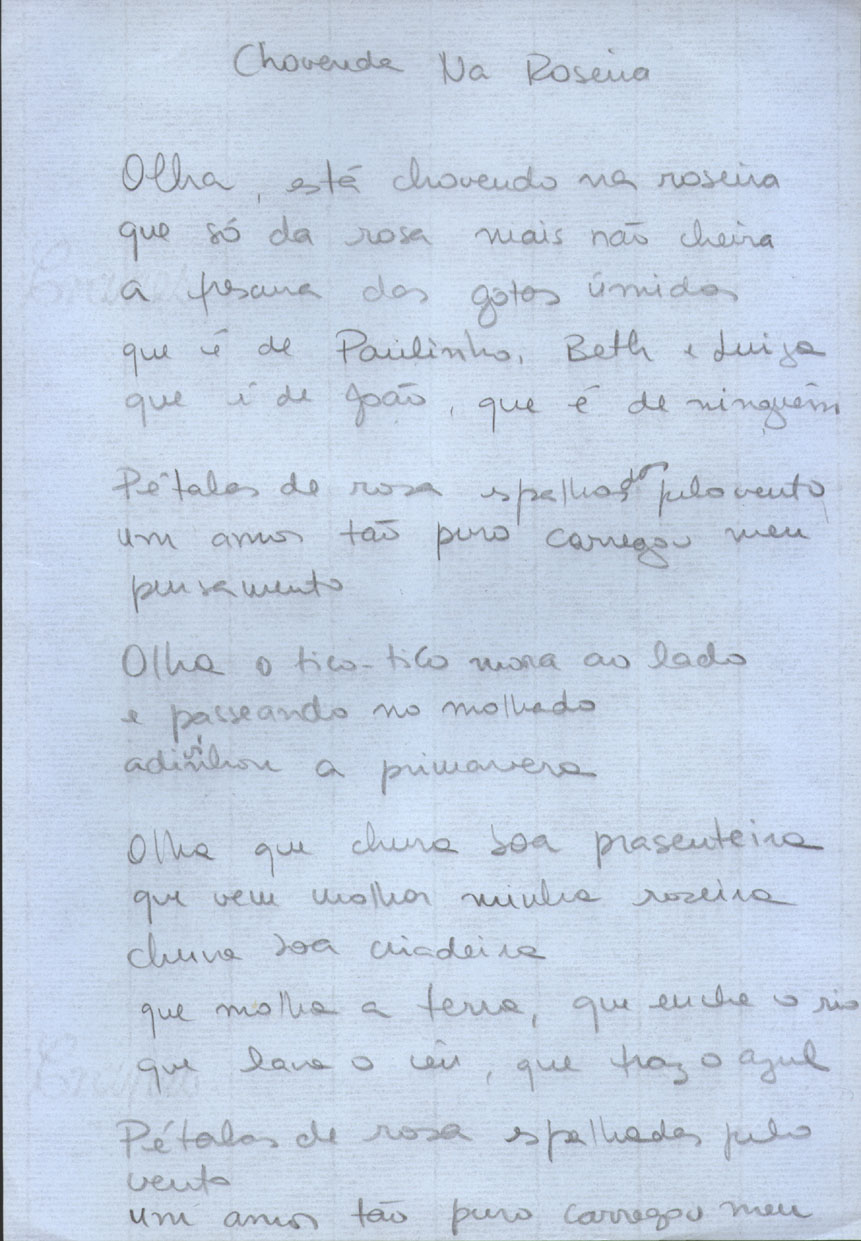 Chovenda Na Roseira
Olha, está chovendo na roseira
que só da rosa mais não cheira
a frescura das gotas úmidas
que é de Paulinho, Beth e Luiza
que é de João, que é de ninguém
Pétalas de rosa espalhadas pelo vento
um amor tão puro carregou meu
pensamento
Olha o tico-tico mora ao lado
e passeando no molhado
adivinhou a primavera
Olha que chuva boa prasenteira
que vem molhar minha roseira
chuva boa criadeira
que molha a terra, que enche o rio
que lava o céu, que traz o azul
Pétalas de rosa espalhadas pelo
vento
um amor tão puro carregou meu